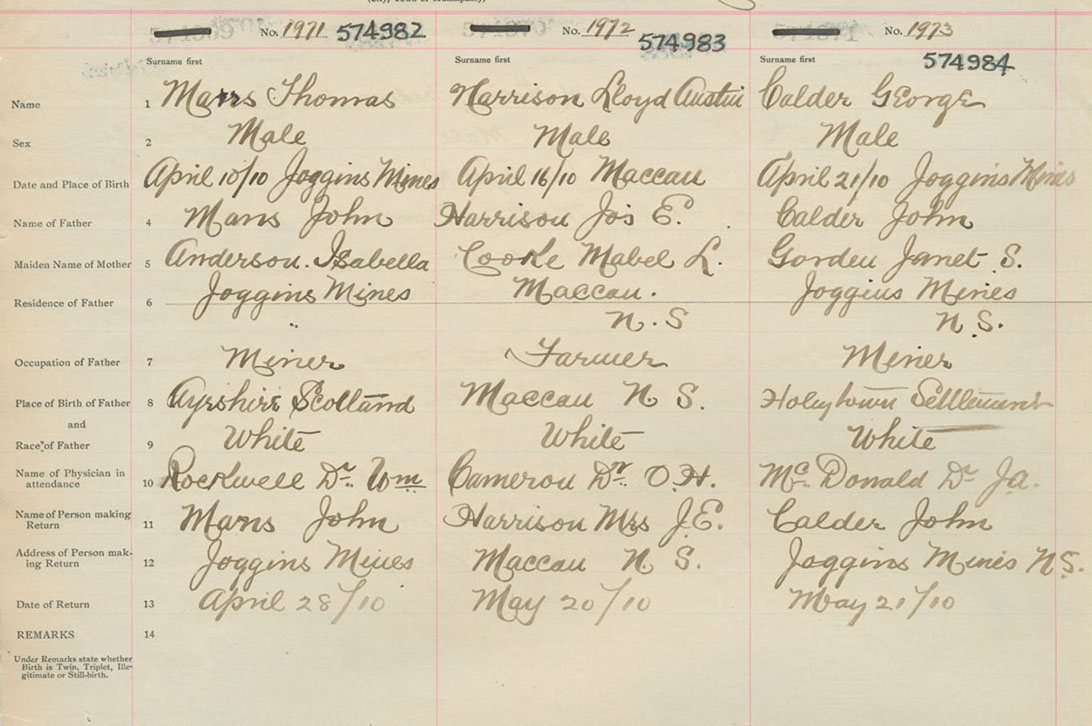 No. 1971 574982 No. 1972 574983 No. 1973 574984
Surname first Surname first Surname first
Name 1 Marrs Thomas Harrison Lloyd Austin Calder George
Sex 2 Male Male Male
Date and Place of Birth 3 April 10/10 Joggins Mines April 16/10 Maccan April 21/10 Joggins Mines
Name of Father 4 Marrs John Harrison Jos E. Calder John
Maiden Name of Mother 5 Anderson. Isabella Cooke Mabel L. Gorden Janet S.
Residence of Father 6 Joggins Mines Maccan. Joggins Mines
" N.S N.S.
Occupation of Father 7 Miner Farmer Miner
Place of Birth of Father 8 Ayrshire Scotland Maccan N S. Holeytown Settlement
and
Race of Father 9 White White White
Name of Physician in
attendance 10 Rockwell Dr. Wm Cameron Dr. O.H. McDonald Dr J.A.
Name of Person making
Return 11 Marrs John Harrison Mrs J.E. Calder John
Address of Person mak-
ing Return 12 Joggins Mines Maccan N S. Joggins Mines N.S.
Date of Return 13 April 28/10 May 20/10 May 21/10
REMARKS 14
Under Remarks state whether
Birth is Twin, Triplet, Ille-
gitimate or Still-birth.